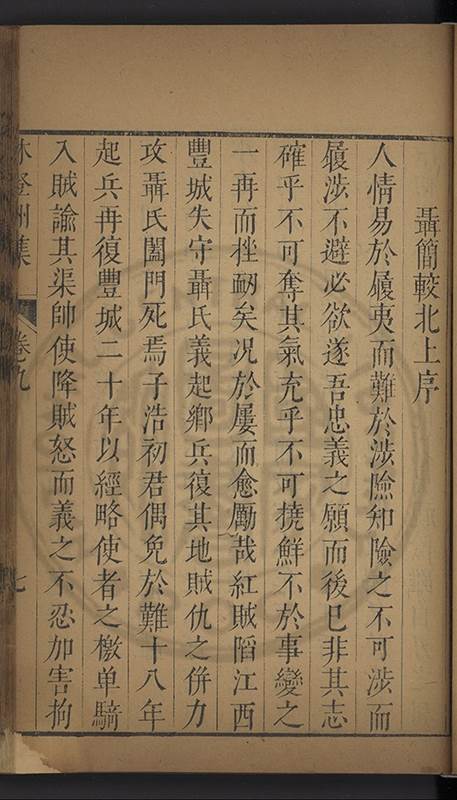 聶簡較北上序
人情易於履夷而難於涉險知險之不可涉而
履涉不避必欲遂吾忠義之願而後已非其志
確乎不可奪其氣充乎不可撓鮮不於事變之
一再而挫衂矣况於屡而愈勵哉紅賊䧟江西
豐城失守聶氏義起鄉兵復其地賊仇之併力
攻聶氏闔門死焉子浩初君偶免於難十八年
起兵再復豐城二十年以經略使者之檄单騎
入賊諭其渠帥使降賊怒而義之不忍加害拘
林登州集 卷九 七